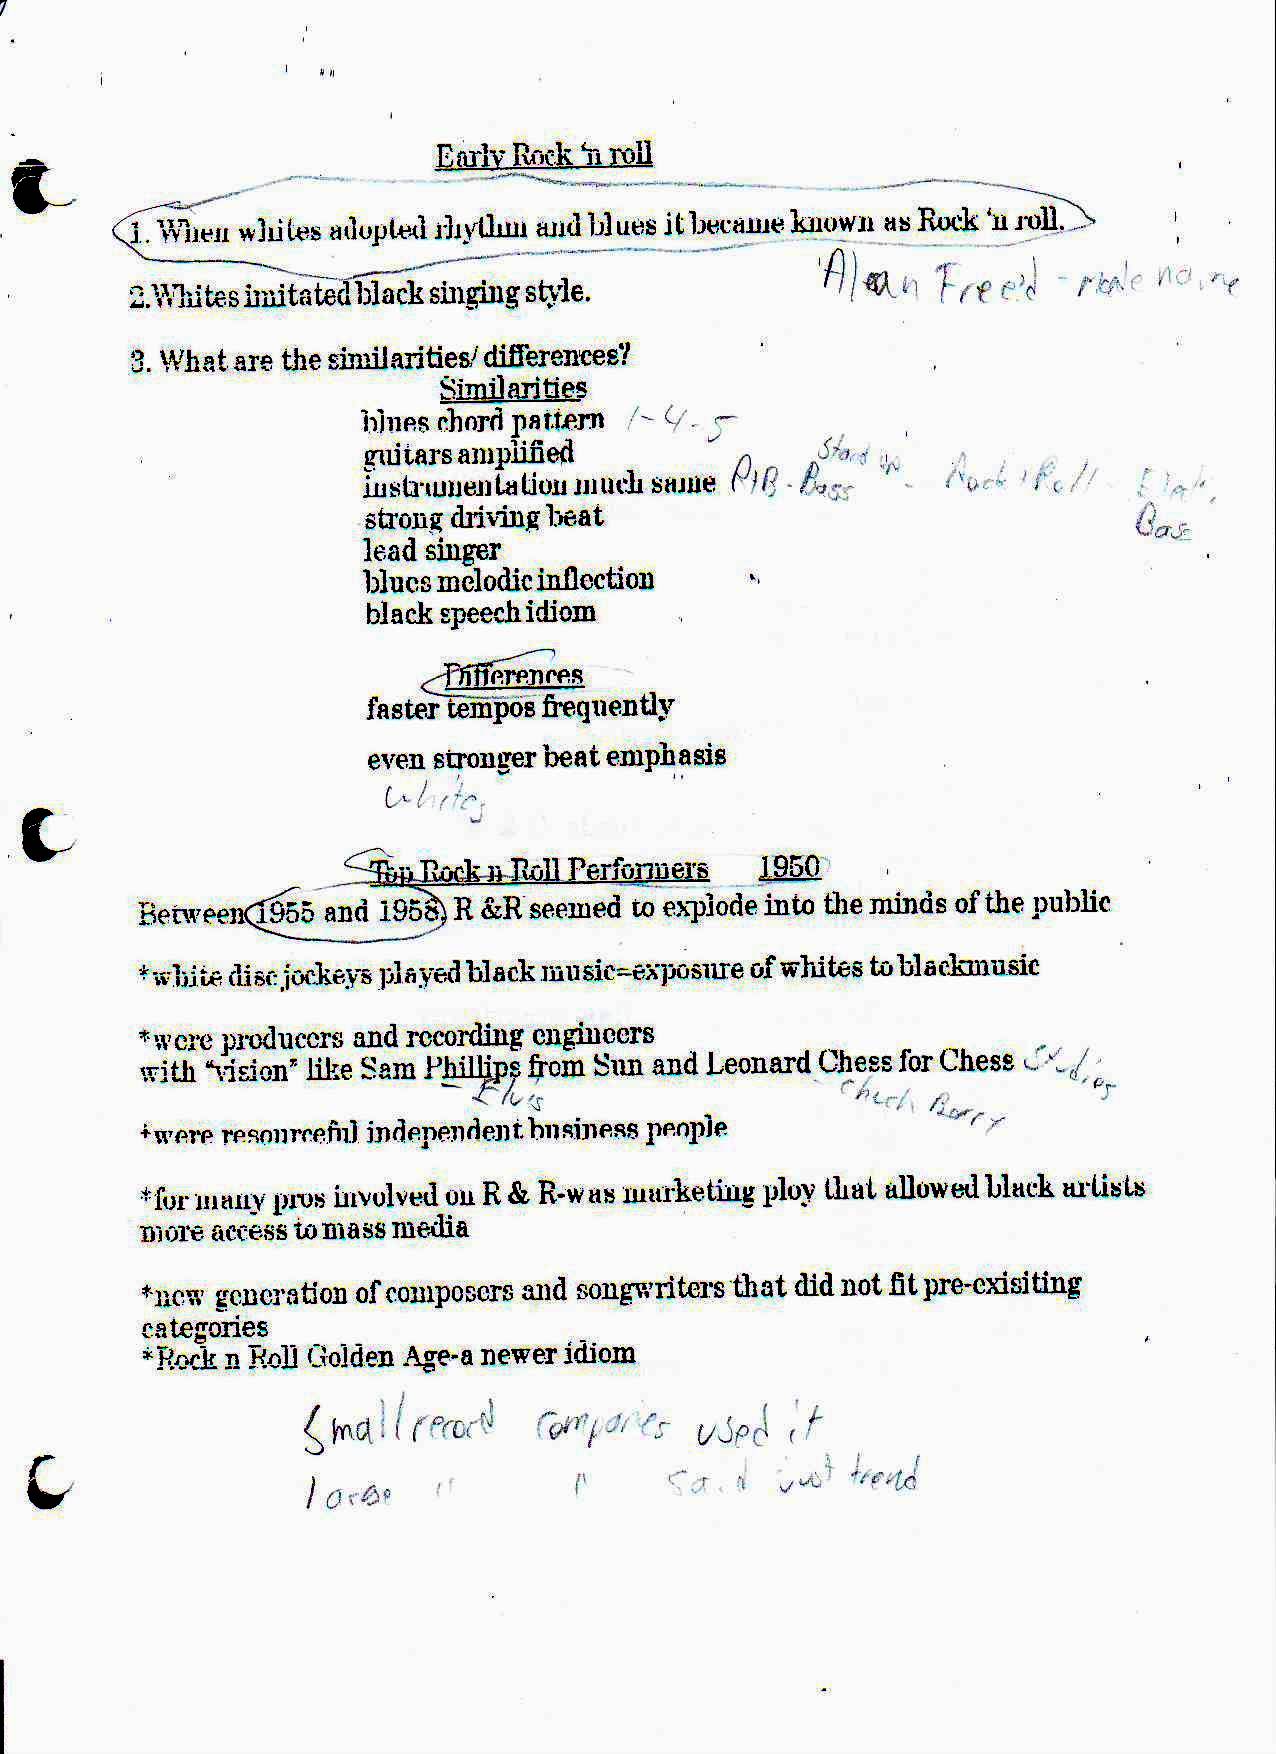 Early Rock 'n roll
1. When whites adopted rhythm and blues it became known as Rock 'n roll.
Alan Freed - made name
2.Whites imitated black singing style.
3. What are the similarities/ differences?
Similarities
blues chord pattern 1-4-5
guitars amplified
instrumentation much same R+B - Stand up Bass - Rock + Roll - Elat. Bass
strong driving beat
lead singer
blues melodic inflection
black speech idiom
Differences
faster tempos frequently
even stronger beat emphasis
whites
Top Rock n Roll Performers 1950
Between 1955 and 1958, R &R seemed to explode into the minds of the public
*white disc jockeys played black music=exposure of whites to blackmusic
*were producers and recording engineers
with "vision" like Sam Phillips from Sun and Leonard Chess for Chess Studios
- Elvis - Chuck Berry
*were resourceful independent business people
*for many pros involved on R & R-was marketing ploy that allowed black artists
more access to mass media
*new generation of composers and songwriters that did not fit pre-exisiting
categories
*Rock n Roll Golden Age-a newer idiom
Small record companies used it
large " " said just trend